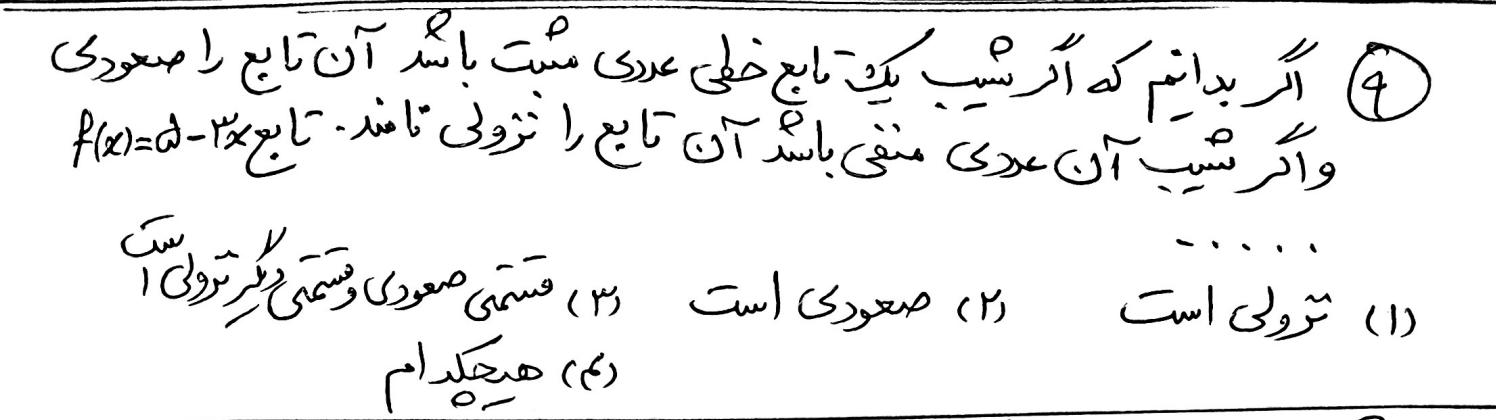 ۹ اگر بدانیم که اگر شیب یک تابع خطی عددی مثبت باشد آن تابع را صعودی
و اگر شیب آن عددی منفی باشد آن تابع را نزولی نامند. تابع f(x)=۵-۳x
.....
(۱) نزولی است (۲) صعودی است (۳) قسمتی صعودی و قسمتی دیگر نزولی است
(۴) هیچکدام